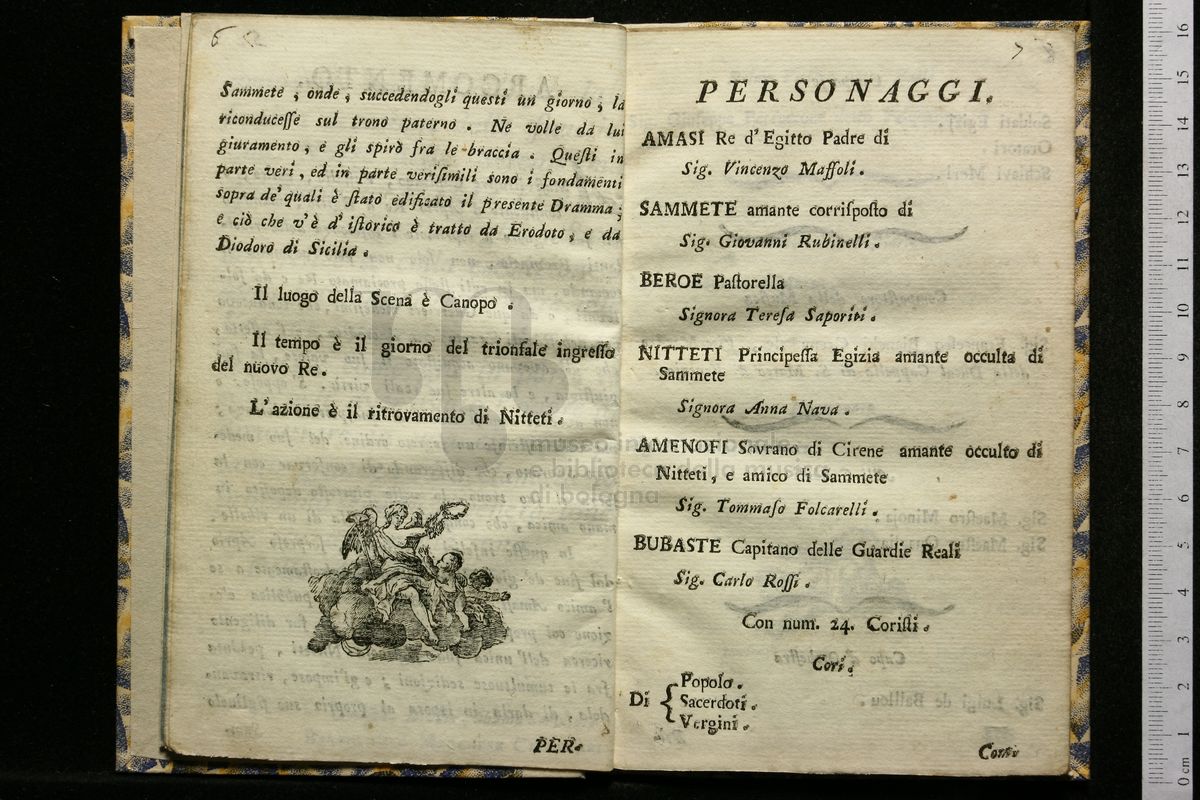 6
Sammete, onde, succedendogli questi un giorno, la
riconducesse sul trono paterno. Ne volle da lui
giuramento, e gli spirò fra le braccia. Questi in
parte veri, ed in parte verisimili sono i fondamenti
sopra de' quali è stato edificato il presente Dramma;
e ciò che v'è d'istorico è tratto da Erodoto, e da
Diodoro di Sicilia.
Il luogo della Scena è Canopo.
Il tempo è il giorno del trionfale ingresso
del nuovo Re.
L'azione è il ritrovamento di Nitteti.
PER-
7
PERSONAGGI.
AMASI Re d'Egitto Padre di
Sig. Vincenzo Maffoli.
SAMMETE amante corrisposto di
Sig. Giovanni Rubinelli.
BEROE Pastorella
Signora Teresa Saporiti.
NITTETI Principessa Egizia amante occulta di
Sammete
Signora Anna Nava.
AMENOFI Sovrano di Cirene amante occulto di
Nitteti, e amico di Sammete
Sig. Tommaso Folcarelli.
BUBASTE Capitano delle Guardie Reali
Sig. Carlo Rossi.
Con num. 24. Coristi.
Cori.
Di { Popolo.
Sacerdoti.
Vergini.
museo internazionale
e biblioteca della musica
di bologna
0 cm 1 2 3 4 5 6 7 8 9 10 11 12 13 14 15 16